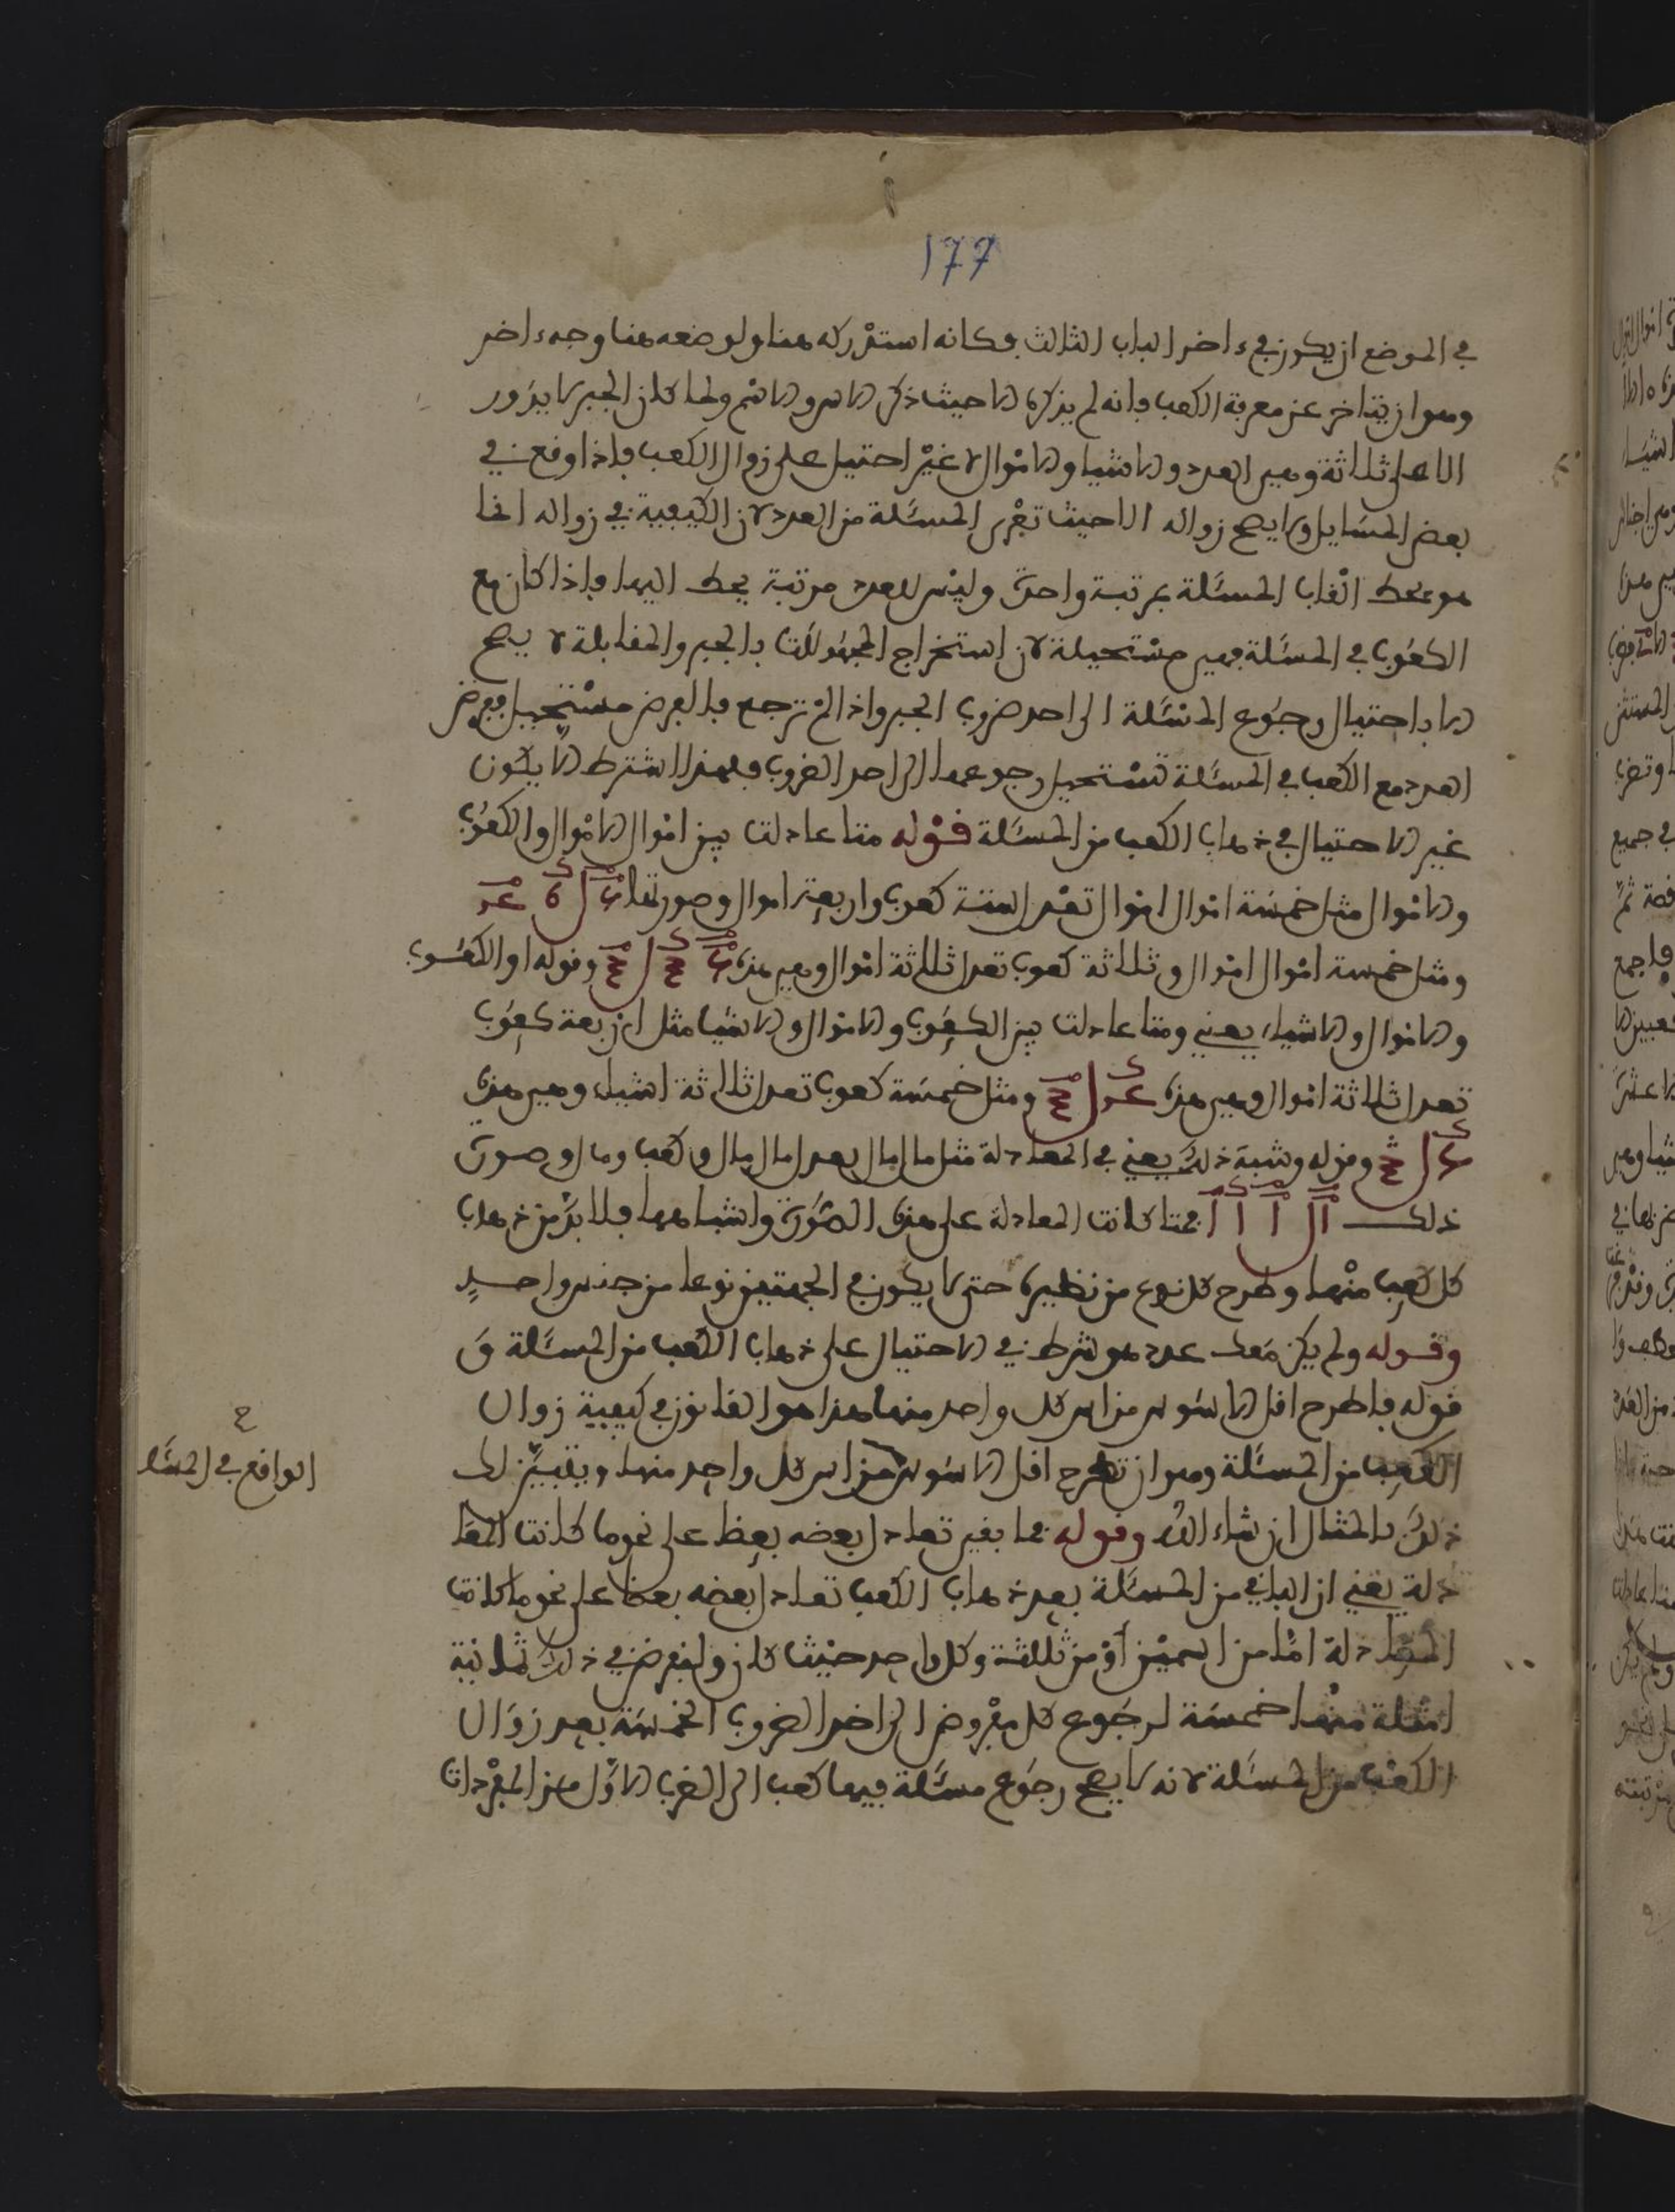 177
في الموضع ان يكون في ءاخر الباب الثالث فكانه استدركه هنا ولوضعه هنا وجه ءاخر
وهو ان يتاخر عن معرفة الكعب فانه لم يذكره الا حيث ذكر الاس والاسم ولما كان الجبر لا يدور
الا على ثلاثة وهي العدد والاشيا والاموال لا غير احتيل على زوال الكعب فاذا وقع في
بعض المسايل ولا يصح زواله الا حيث تعرى المسئلة من العدد لان الكيفية في زواله انما
هو بحط القاب المسئلة بمرتبة واحدة وليس للعدد مرتبة يحط اليها فاذا كان مع
الكعوب في المسئلة فهي مستحيلة لان استخراج المجهولات بالجبر والمقابلة لا يصح
الا باحتيال رجوع المسئلة الى احد ضروب الجبر واذا لم ترجع فالغرض مستحيل ففرض
العدد مع الكعب في المسئلة تستحيل رجوعها الى احد الضروب فلهذا اشترط الا يكون
غير الاحتيال في ذهاب الكعب من المسئلة قوله متا عادلت بين اموال الاموال والكعوب
والاموال مثل خمسة اموال اموال تعدل ستة كعوب واربعة اموال وصورتها
ومثل خمسة اموال اموال وثلاثة كعوب تعدل ثلاثة اموال وهي هذه وقوله او الكعوب
والاموال والاشياء يعني ومتا عادلت بين الكعوب والاموال والاشيا مثل اربعة كعوب
تعدل ثلاثة اموال وهي هذه ومثل خمسة كعوب تعدل ثلاثة اشياء وهي هذه
وقوله وشبه ذلك يعني في المعادلة مثل مال مال يعدل مال مال وكعب ومال وصورة
ذلك فمتا كانت المعادلة على هذه الصورة واشباهها فلا بد من ذهاب
كل كعب منها وطرح كل نوع من نظيره حتى لا يكون في الجهتين نوعا من جنس واحد
وقوله ولم يكن معك عدد هو شرط في الاحتيال على ذهاب الكعب من المسئلة و
قوله فاطرح اقل الاسوس من اس كل واحد منها هذا هو القانون في كيفية زوال
الكعب من المسئلة وهو ان تطرح اقل الاسوس من اس كل واحد منها ويتبين لك
الواقع في المسئلة
ذلك بالمثال ان شاء الله وقوله فما بقي تعادل بعضه بعظا على نحو ما كانت المعا
دلة يعني ان الباقي من المسئلة بعد ذهاب الكعب تعادل بعضه بعظا على نحو ما كانت
المعادلة اما من اسمين او من ثلثة وكل واحد حيث كان ولنفرض في ذلك ثمانية
امثلة منها خمسة لرجوع كل مفروض الى احد الضروب الخمسة بعد زوال
الكعب من المسئلة لانه لا يصح رجوع مسئلة فيها كعب الى الضرب الاول من المفردات